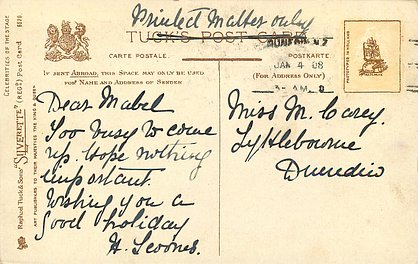 Printed Matter only
TUCK'S POST CARD
CARTE POSTALE.
POSTKARTE
IF SENT ABROAD, THIS SPACE MAY ONLY BE USED
FOR NAME AND ADDRESS OF SENDER
(FOR ADDRESS ONLY)
DUNEDIN N Z
JAN 4 08
3- AM. 8
Dear Mabel
Too busy to come
up. Hope nothing
important.
Wishing you a
good holiday
H. Scoones.
Miss M. Carey.
Lyttlebourne
Dunedin
CELEBRITIES OF THE STAGE
Raphael Tuck & Sons' "SILVERETTE" (REGD.) Post Card
ART PUBLISHERS TO THEIR MAJESTIES THE KING & QUEEN